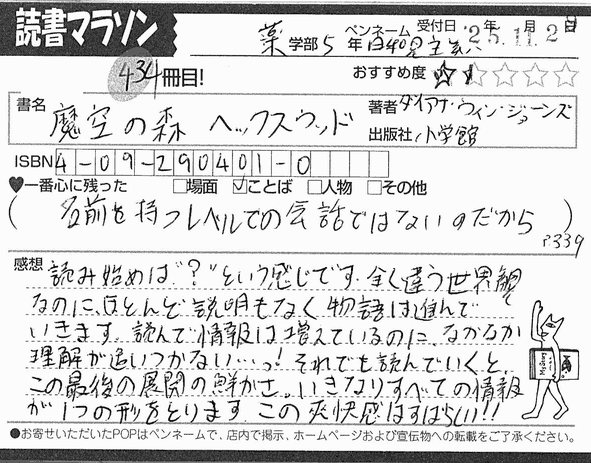 読書マラソン
薬学部5年 ペンネーム 受付日 '25年 11月2日
434冊目! おすすめ度 ★★☆☆☆
書名 魔空の森 ヘックスウッド
著者 ダイアナ・ウィン・ジョーンズ
出版社 小学館
ISBN 4-09-290401-0
♥一番心に残った □場面 ☑ことば □人物 □その他
(名前を持つレベルでの会話ではないのだから) P.339
感想 読み始めは“?”という感じです。全く違う世界観
なのに、ほとんど説明もなく物語は進んで
いきます。読んで情報は増えているのに、なかなか
理解が追いつかない…っ! それでも読んでいくと、
この最後の展開の鮮かさ。いきなりすべての情報
が1つの形をとります。この爽快感はすばらしい!!
●お寄せいただいたPOPはペンネームで、店内で掲示、ホームページおよび宣伝物への転載をご了承ください。